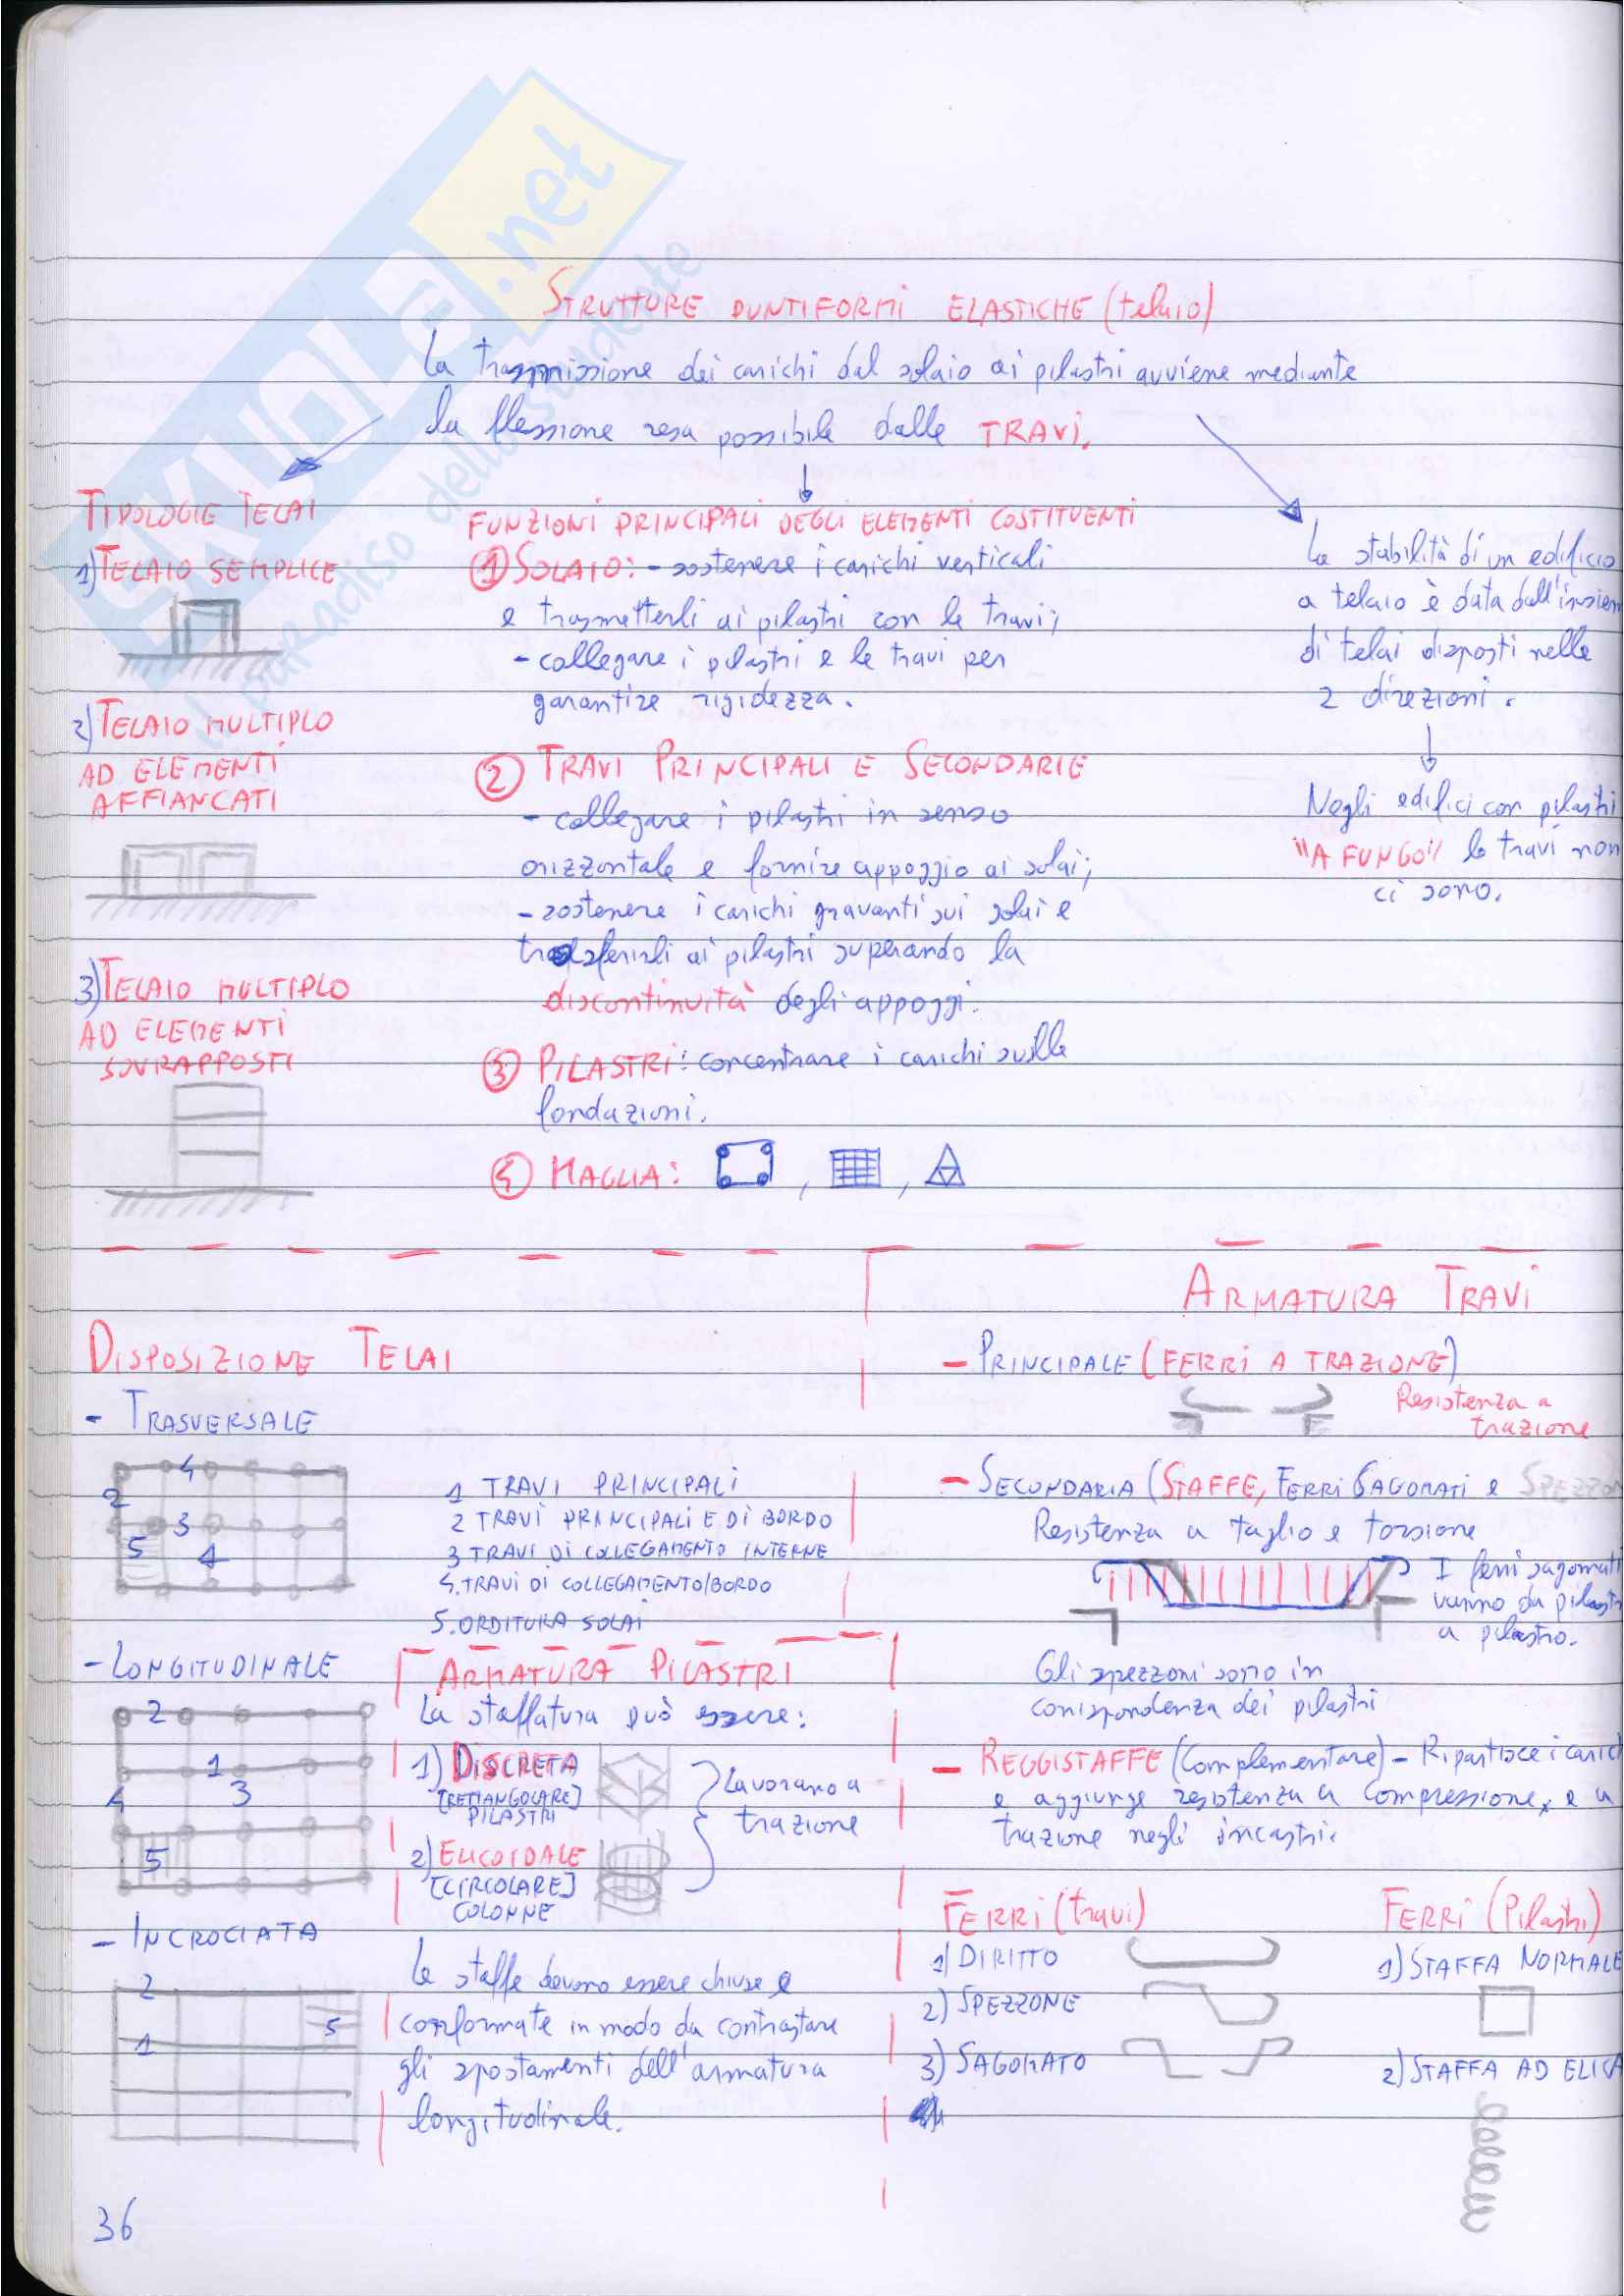 SKUOLA.net
il paradiso dello studente
STRUTTURE PUNTIFORMI ELASTICHE (telaio)
La trasmissione dei carichi dal solaio ai pilastri avviene mediante
la flessione resa possibile dalle TRAVI.
TIPOLOGIE TELAI
1) TELAIO SEMPLICE
2) TELAIO MULTIPLO
AD ELEMENTI
AFFIANCATI
3) TELAIO MULTIPLO
AD ELEMENTI
SOVRAPPOSTI
FUNZIONI PRINCIPALI DEGLI ELEMENTI COSTITUENTI
1 SOLAIO: - sostenere i carichi verticali
e trasmetterli ai pilastri con le travi;
- collegare i pilastri e le travi per
garantire rigidezza.
2 TRAVI PRINCIPALI E SECONDARIE
- collegare i pilastri in senso
orizzontale e fornire appoggio ai solai;
- sostenere i carichi gravanti sui solai e
trasferirli ai pilastri superando la
discontinuità degli appoggi.
3 PILASTRI: concentrare i carichi sulle
fondazioni.
4 MAGLIA: , ,
La stabilità di un edificio
a telaio è data dall'insiem
di telai disposti nelle
2 direzioni.
Negli edifici con pilastri
"A FUNGO" le travi non
ci sono.
DISPOSIZIONE TELAI
- TRASVERSALE
4
2
3
5
1
1 TRAVI PRINCIPALI
2 TRAVI PRINCIPALI E DI BORDO
3 TRAVI DI COLLEGAMENTO INTERNE
4. TRAVI DI COLLEGAMENTO/BORDO
5. ORDITURA SOLAI
- LONGITUDINALE
2
1
4
3
5
- INCROCIATA
2
5
1
ARMATURA PILASTRI
La staffatura può essere:
1) DISCRETA
[RETTANGOLARE]
PILASTRI
2) ELICOIDALE
[CIRCOLARE]
COLONNE
Lavorano a
trazione
Le staffe devono essere chiuse e
conformate in modo da contrastare
gli spostamenti dell'armatura
longitudinale.
ARMATURA TRAVI
- PRINCIPALE (FERRI A TRAZIONE)
Resistenza a
trazione
- SECONDARIA (STAFFE, FERRI SAGOMATI e SPEZZON
Resistenza a taglio e torsione
I ferri sagomati
vanno da pilastr
a pilastro.
Gli spezzoni sono in
corrispondenza dei pilastri
- REGGISTAFFE (Complementare) - Ripartisce i carich
e aggiunge resistenza a compressione, e a
trazione negli incastri.
FERRI (travi)
1) DIRITTO
2) SPEZZONE
3) SAGOMATO
FERRI (Pilastri)
1) STAFFA NORMALE
2) STAFFA AD ELICA
36